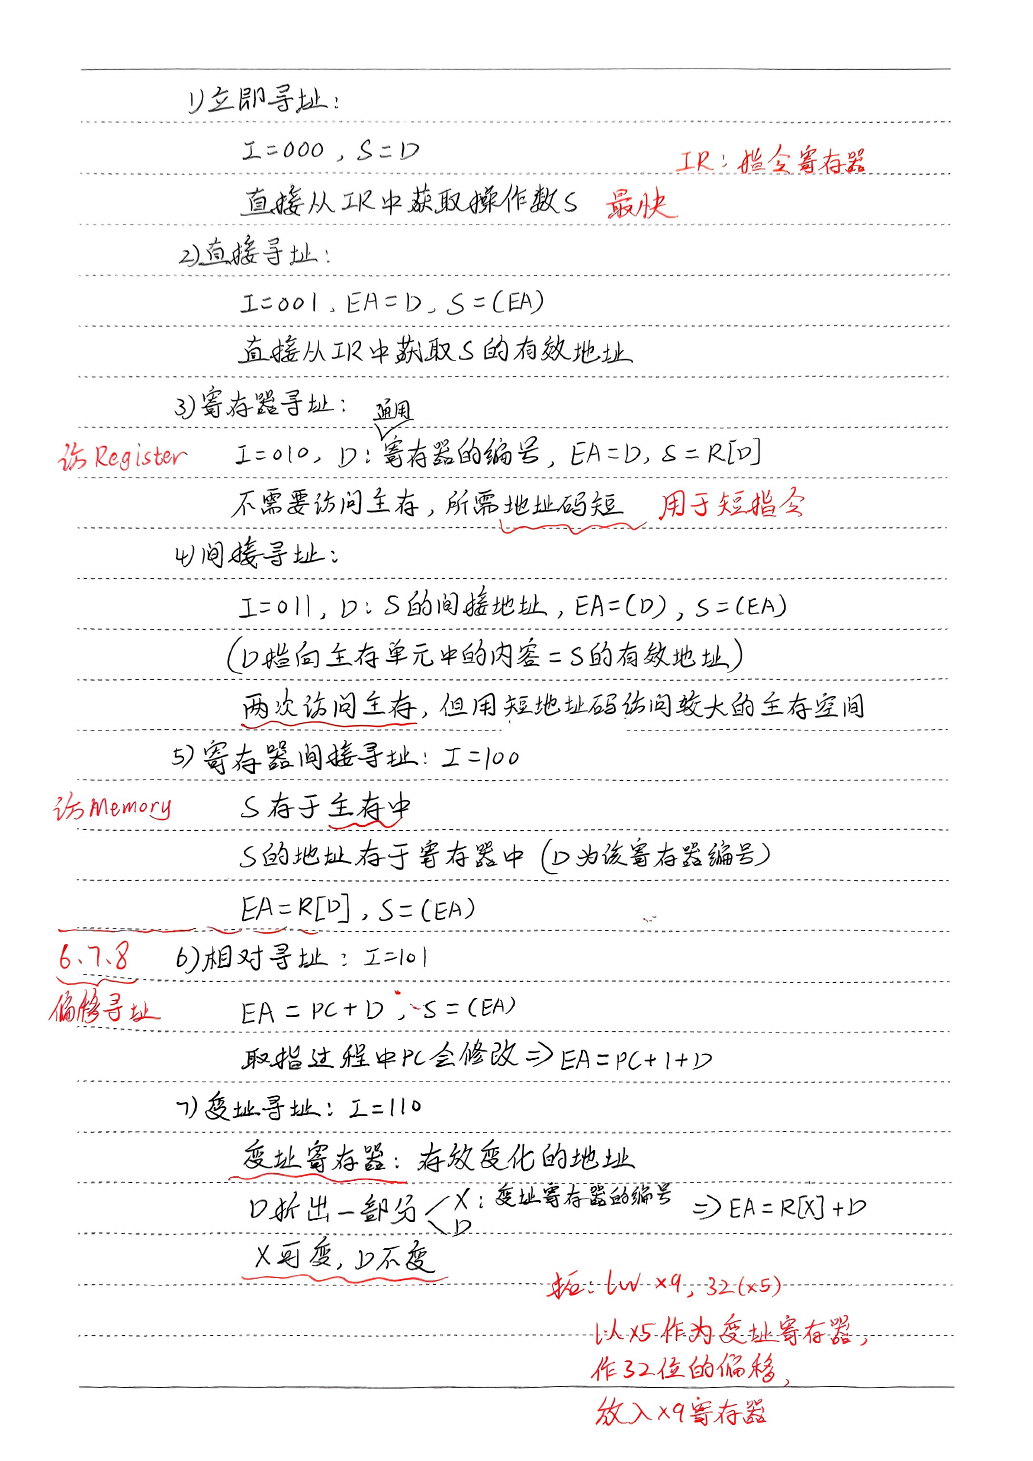 1)立即寻址：
I=000，S=D
IR：指令寄存器
直接从IR中获取操作数S 最快
2)直接寻址：
I=001，EA=D，S=(EA)
直接从IR中获取S的有效地址
3)寄存器寻址：
通用
访Register I=010，D：寄存器的编号，EA=D，S=R[D]
不需要访问主存，所需地址码短 用于短指令
4)间接寻址：
I=011，D：S的间接地址，EA=(D)，S=(EA)
(D指向主存单元中的内容=S的有效地址)
两次访问主存，但用短地址码访问较大的主存空间
5)寄存器间接寻址：I=100
访Memory S存于主存中
S的地址存于寄存器中(D为该寄存器编号)
EA=R[D]，S=(EA)
6、7、8 6)相对寻址：I=101
偏移寻址 EA=PC+D，S=(EA)
取指过程中PC会修改⇒EA=PC+1+D
7)变址寻址：I=110
变址寄存器：存放变化的地址
D折出一部分 X：变址寄存器的编号 ⇒EA=R[X]+D
D
X可变，D不变
拓：lw x9，32(x5)
以x5作为变址寄存器，
作32位的偏移，
放入x9寄存器